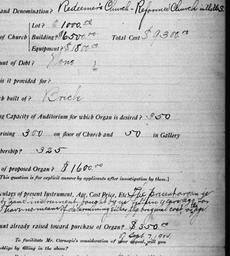 and Denomination? Redeemer's Church - Reformed Church in the U.S.
Lot? $ 1000.00
of Church Building? $6500.00 Total Cost $9300.00
Equipment? $1800.00
unt of Debt? None
is it provided for?
ch built of? Brick
ng Capacity of Auditorium for which Organ is desired? 350
rising 300 on floor of Church and 50 in Gallery
bership? 325
of proposed Organ? $1600.00
(This question is for explicit answer by applicants after investigation by them.)
culars of present Instrument, Age, Cost Price, Etc.
have no means of determining the original cost or age
unt already raised toward purchase of Organ? $350.00
To facilitate Mr. Carnegie's consideration of your appeal will you
oblige by filling in the above?